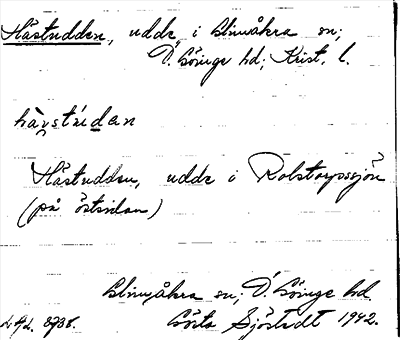 Hästudden, udde i Glimåkra sn;
Ö. Göinge hd; Krist. l.
hàstúdan
Hästudden, udde i Rolstorpssjön
(på östsidan)
Glimåkra sn; Ö. Göinge hd.
Gösta Sjöstedt 1942.